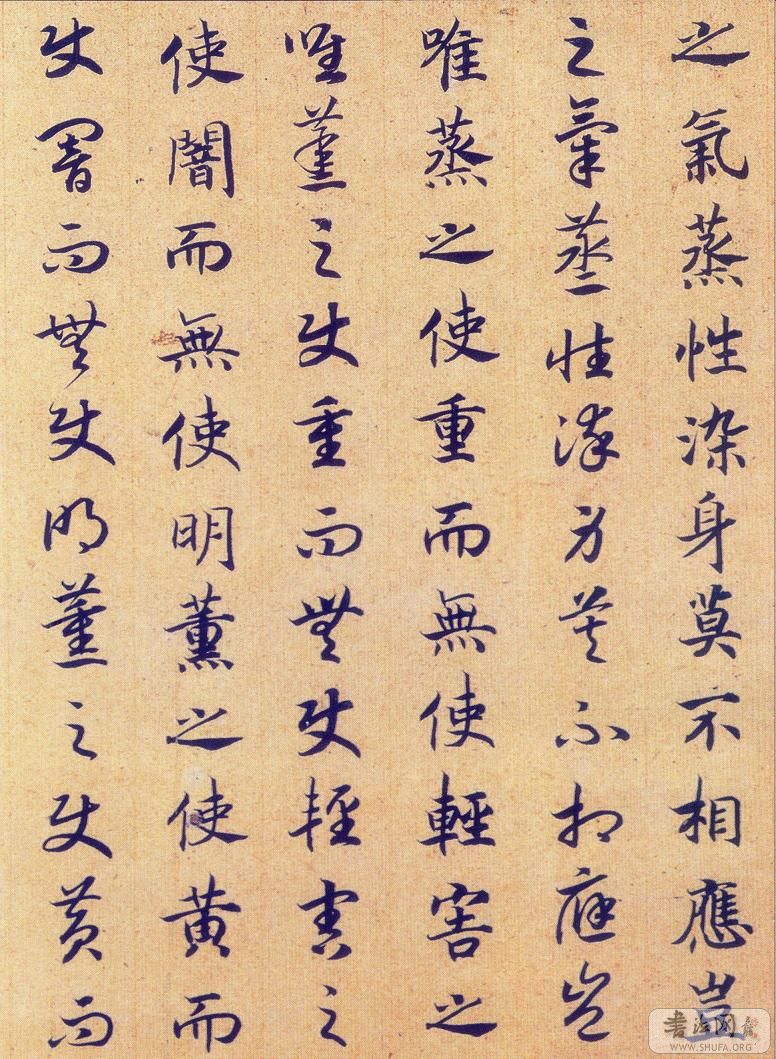 之氣蒸性染身莫不相應豈
之氣蒸性染身莫不相應豈
唯蒸之使重而無使輕害之
唯薰之使重而無使輕害之
使闇而無使明薰之使黃而
使闇而無使明薰之使黃而
书法网
WWW.SHUFA.ORG